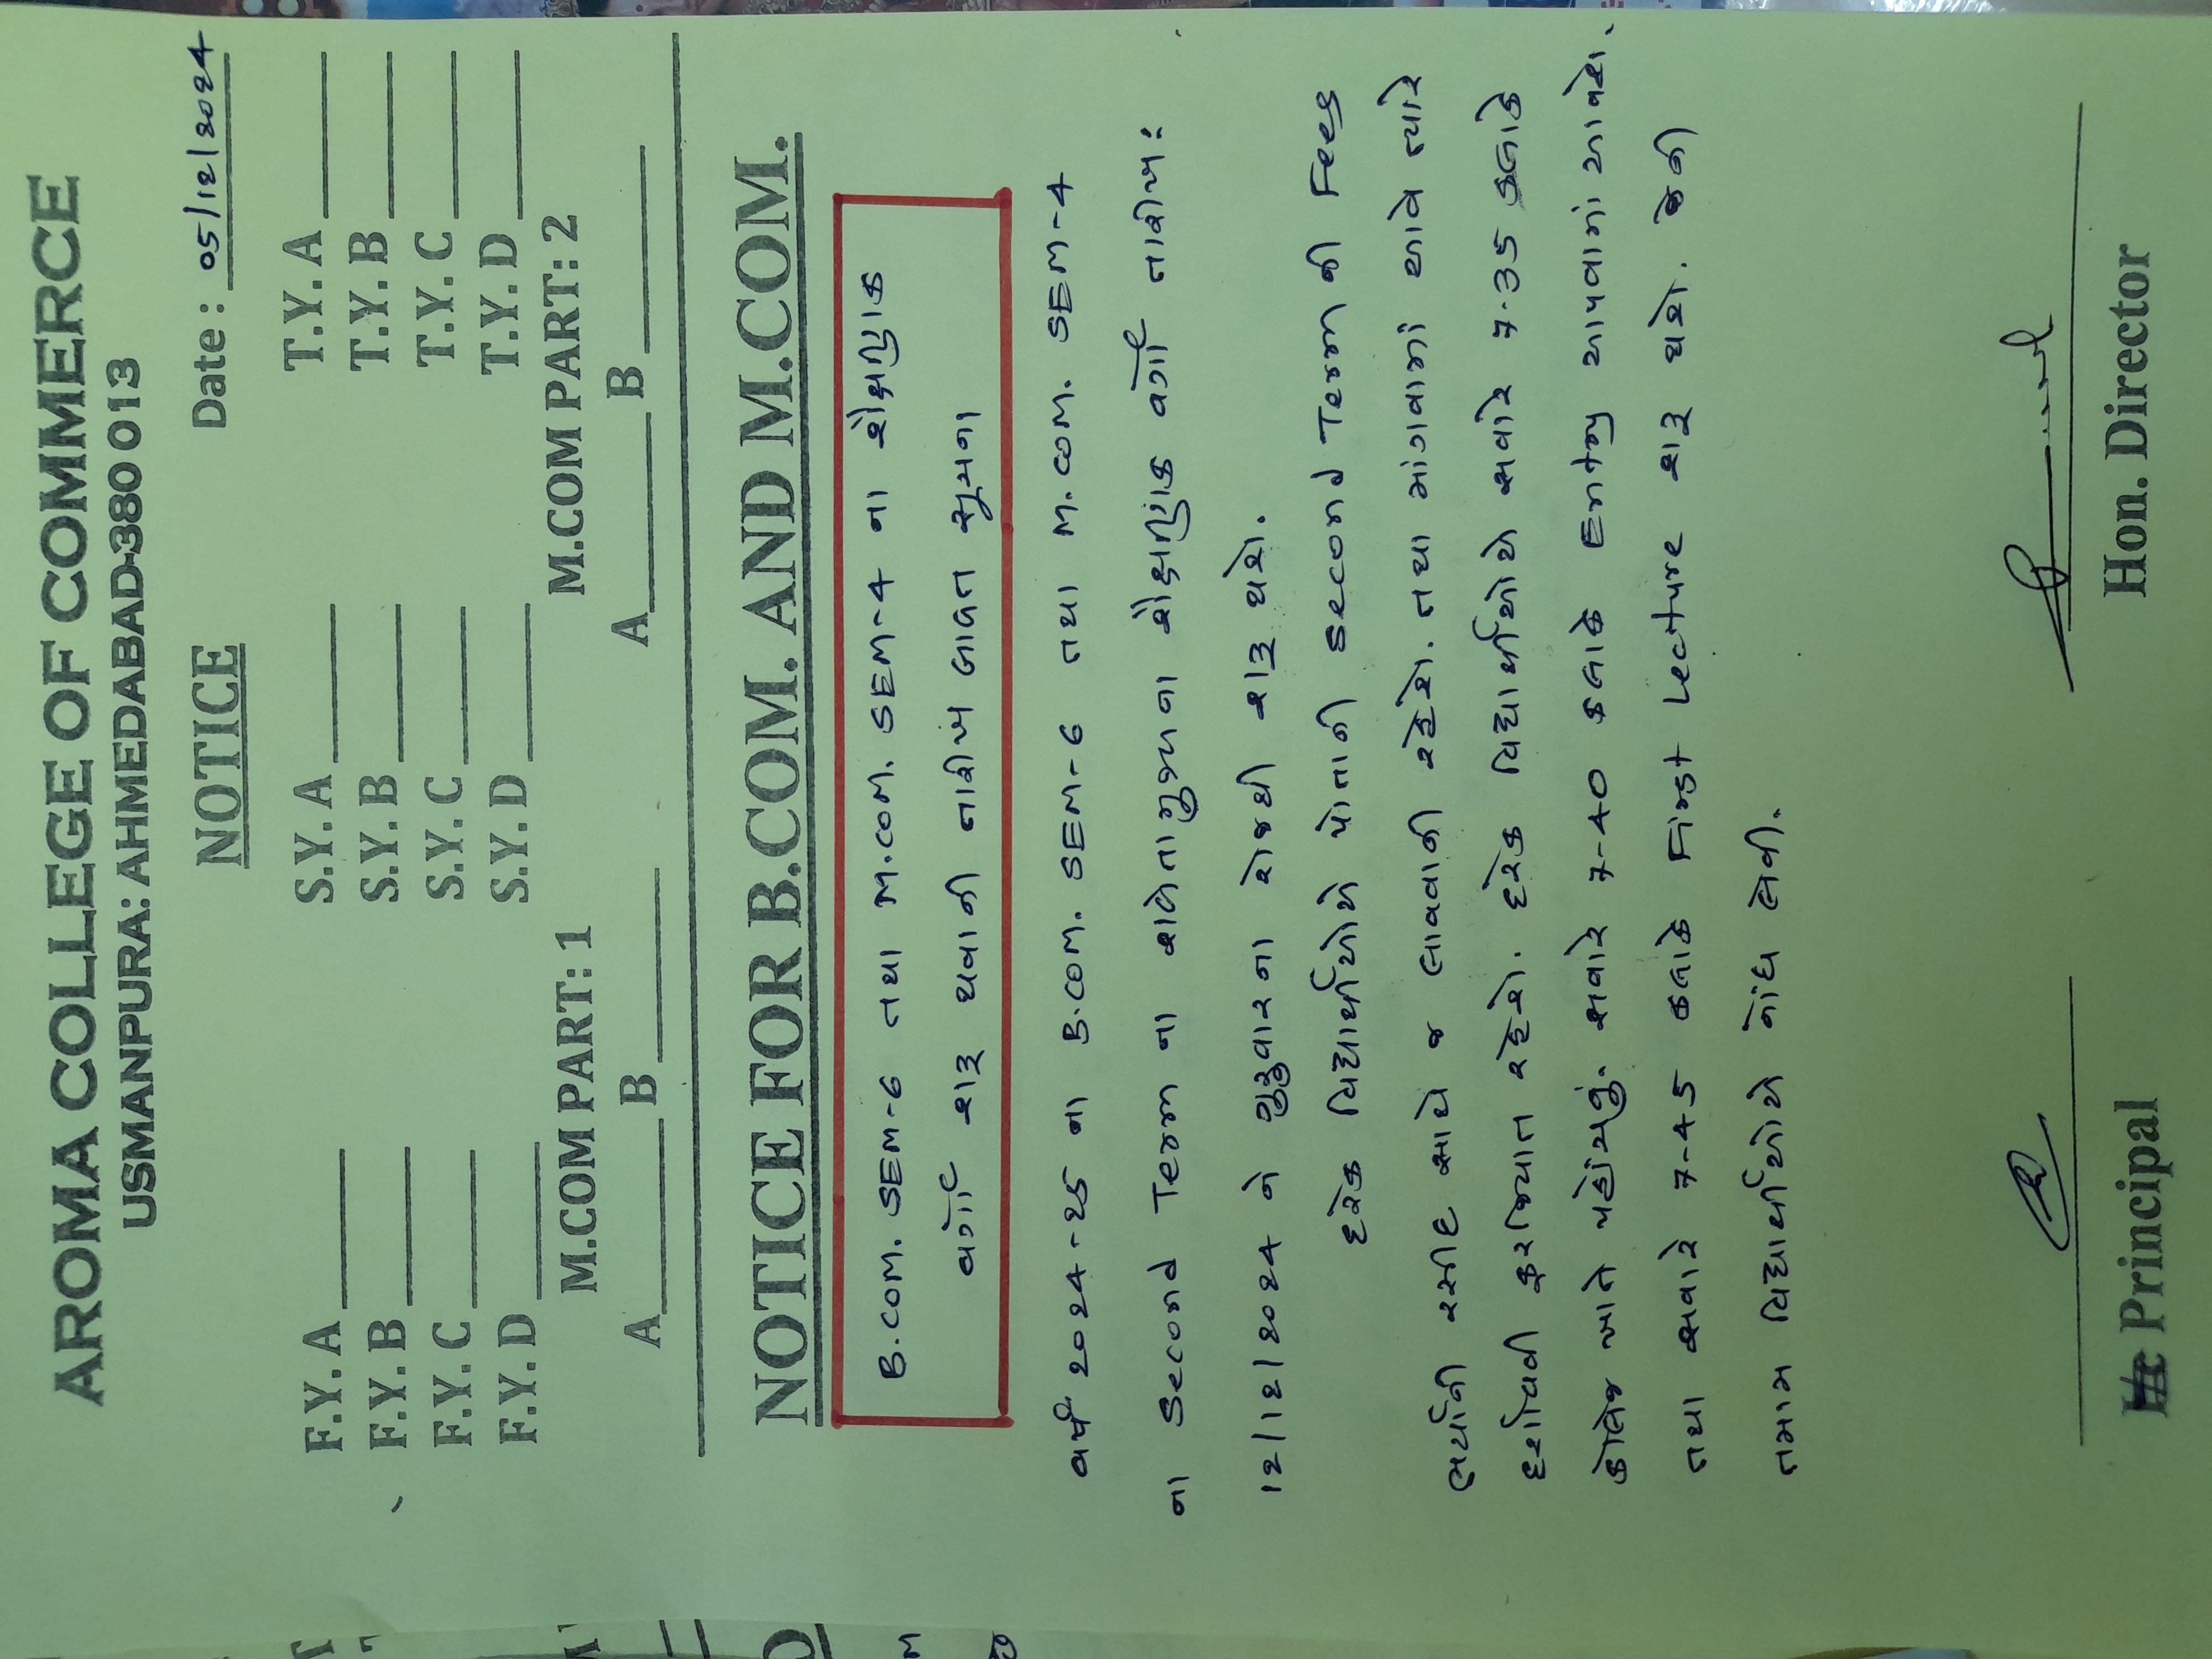 AROMA COLLEGE OF COMMERCE
USMANPURA: AHMEDABAD-380 013
NOTICE
Date : 05/12/2024
F.Y. A S.Y. A T.Y. A
F.Y. B S.Y. B T.Y. B
F.Y. C S.Y. C T.Y. C
F.Y. D S.Y. D T.Y. D
M.COM PART: 1 M.COM PART: 2
A B A B
NOTICE FOR B.COM. AND M.COM.
B.COM. SEM-6 તથા M.COM. SEM-4 ના શૈક્ષણિક
વર્ગો શરૂ થવાની તારીખ બાબત સૂચના
વર્ષ 2024-25 ના B.COM. SEM-6 તથા M.COM. SEM-4
ના Second Term ના કોલેજના શૈક્ષણિક વર્ગો તારીખ:
12/12/2024 ને ગુરુવારના રોજથી શરૂ થશે.
દરેક વિદ્યાર્થીઓએ પોતાની Second Term ની Fees
ભર્યાની રસીદ સાથે જ લાવવાની રહેશે. તથા માંગવામાં આવે ત્યારે
દર્શાવવી ફરજિયાત રહેશે. દરેક વિદ્યાર્થીઓએ સવારે 7-35 કલાકે
કોલેજ ખાતે પહોંચવું. સવારે 7-40 કલાકે Entry આપવામાં આવશે.
તથા સવારે 7-45 કલાકે First Lecture શરૂ થશે. જેની
તમામ વિદ્યાર્થીઓએ નોંધ લેવી.
Principal Hon. Director